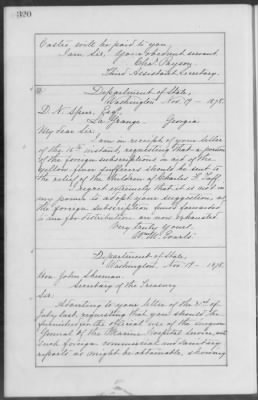 320
Castro will be paid to you.
I am Sir, Your obedient servant
Chas. Payson.
Third Assistant Secretary.
Department of State,
Washington Nov. 19 - 1878.
D. N. Speer, Esq.
La Grange - Georgia
My dear Sir,
I am in receipt of your letter
of the 16th instant, requesting that a portion
of the foreign subscriptions in aid of the
yellow fever sufferers should be sent to
the relief of the children of Charles
I regret extremely that it is not in
my power to adopt your suggestion, as
the foreign subscription funds forwarded
to me for distribution are now exhausted.
Very truly yours.
Wm. M. Evarts.
Department of State,
Washington, Nov. 19 - 1878.
Hon. John Sherman.
Secretary of the Treasury
Sir.
Adverting to your letter of the
July last, requesting that you should be
furnished for the official use of the Surgeon
General of the Marine Hospital Service, with
such foreign commercial and sanitary
reports as might be obtainable, showing